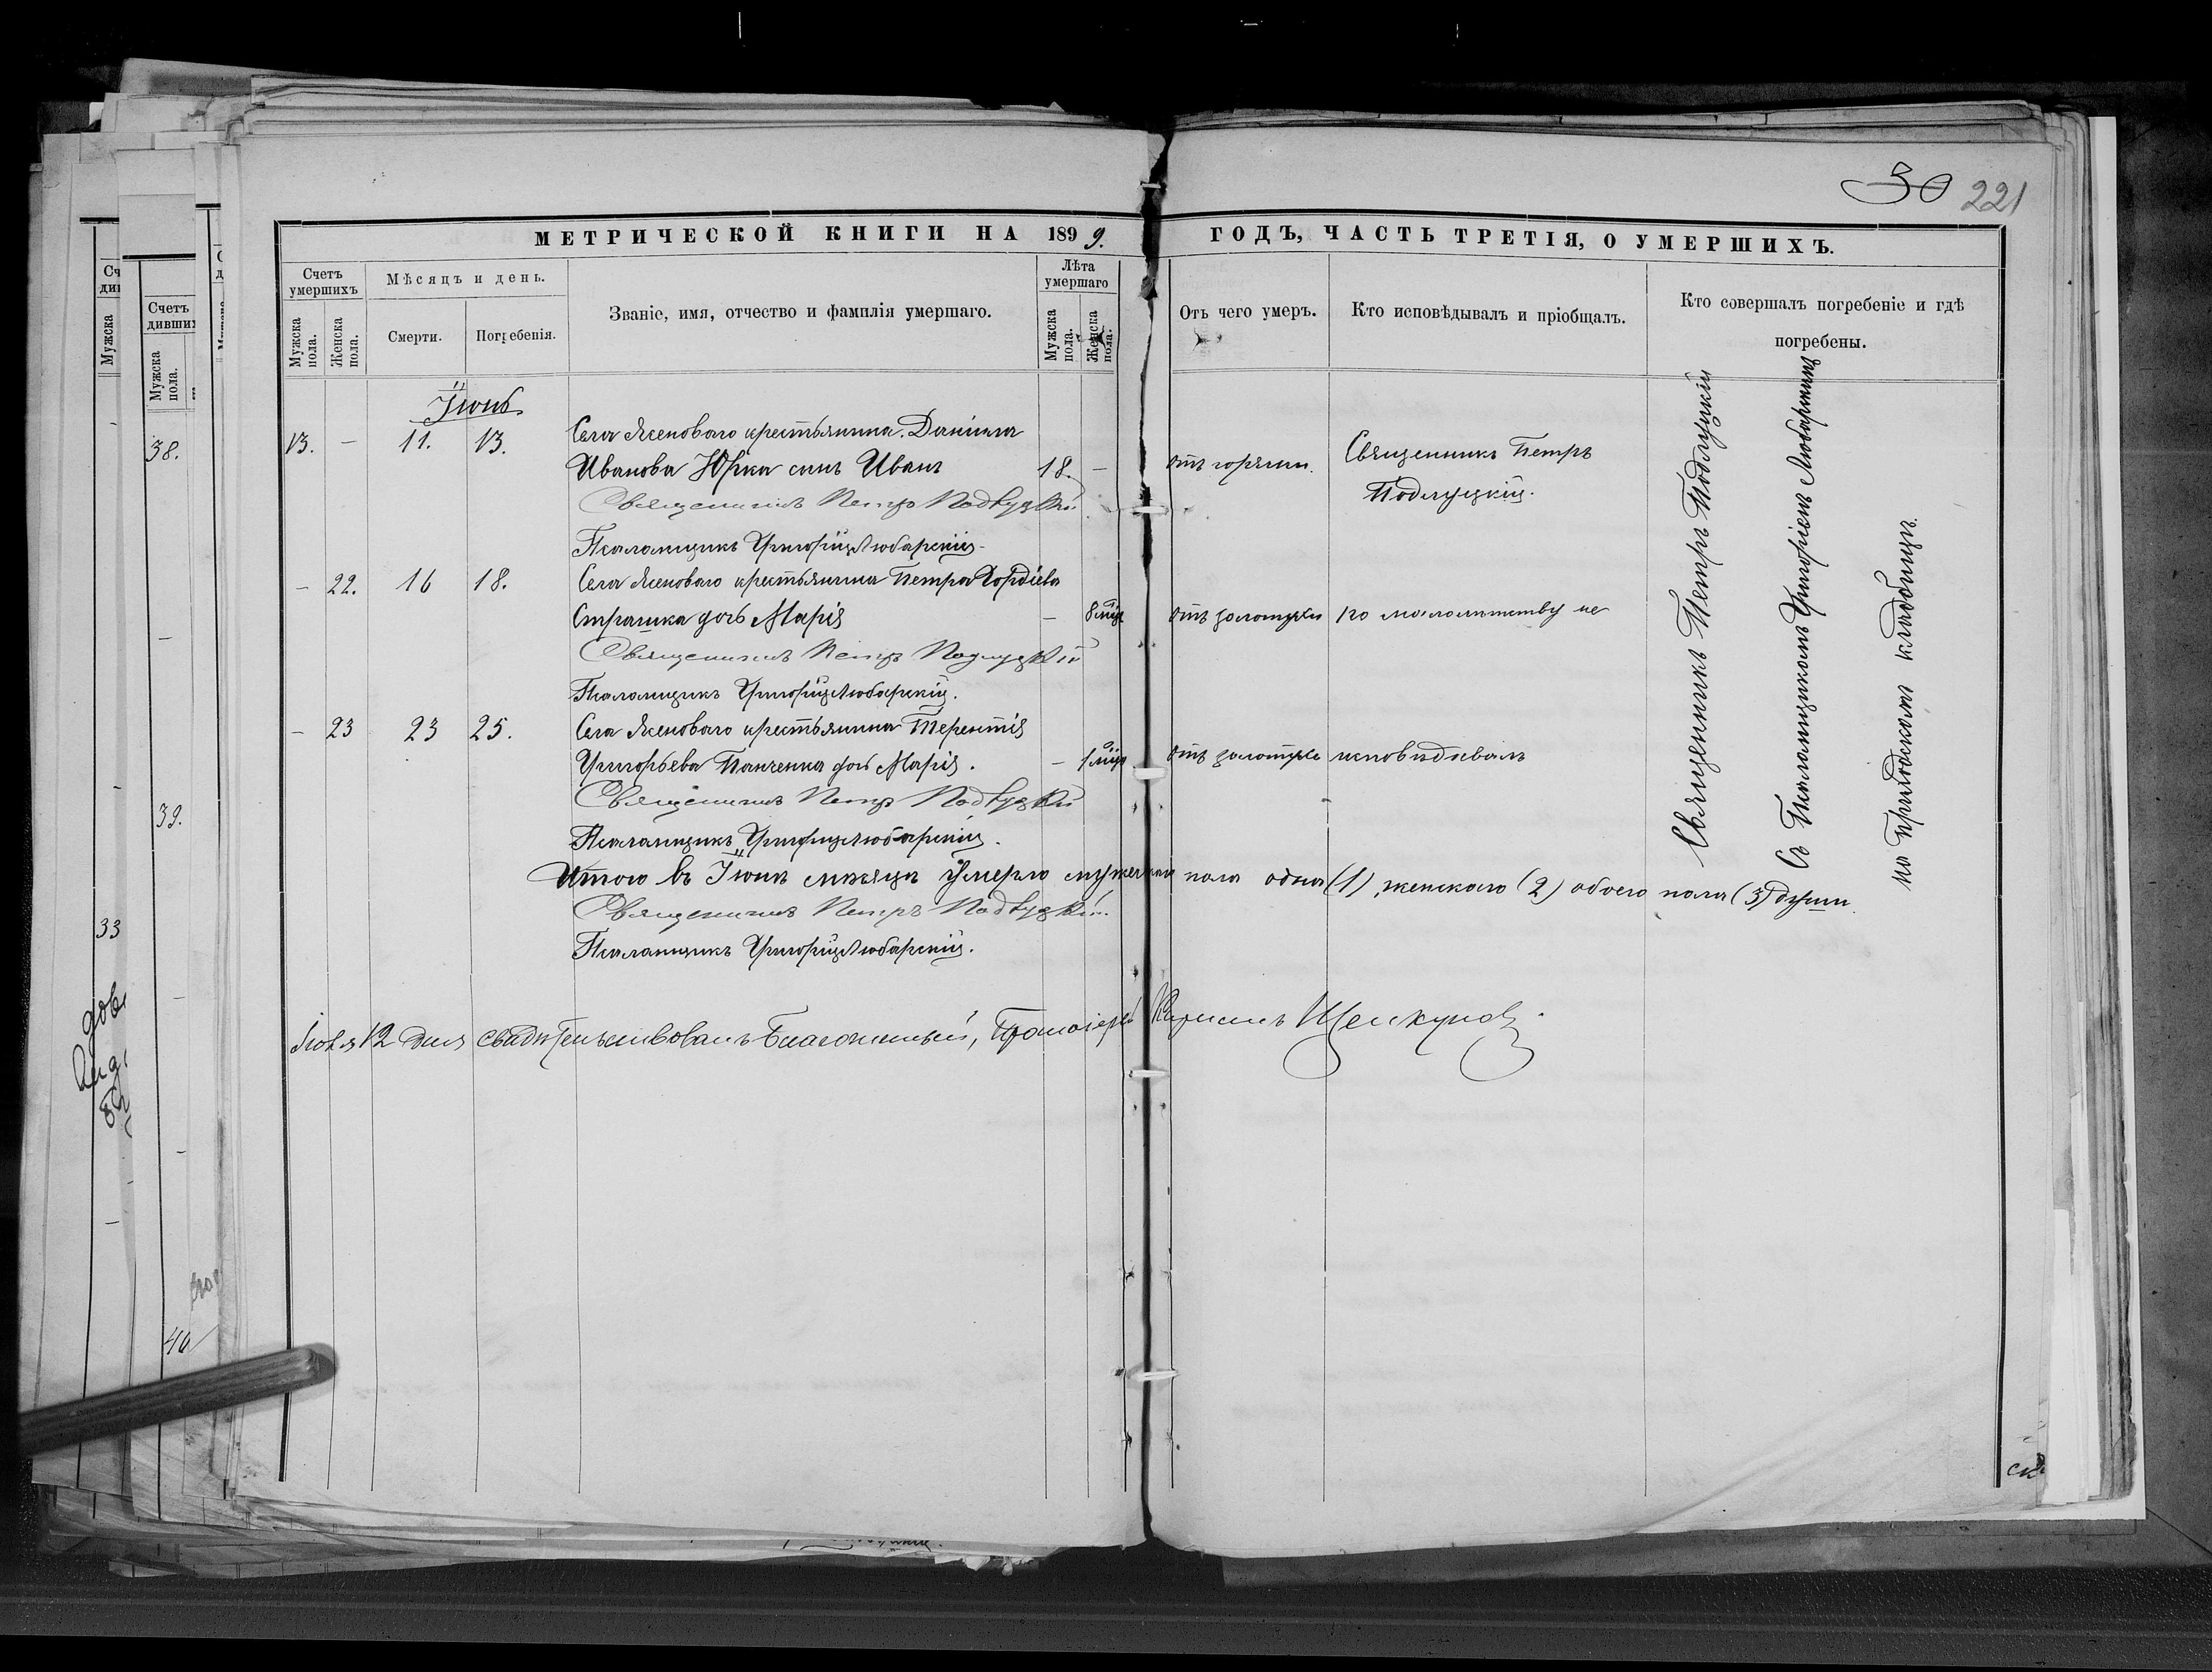 30 221
МЕТРИЧЕСКОЙ КНИГИ НА 1899. ГОДЪ, ЧАСТЬ ТРЕТІЯ, О УМЕРШИХЪ.
Счетъ умершихъ
Мѣсяцъ и день.
Званіе, имя, отчество и фамилія умершаго.
Лѣта умершаго
Отъ чего умеръ.
Кто исповѣдывалъ и пріобщалъ.
Кто совершалъ погребеніе и гдѣ
погребены.
Мужска пола.
Женска пола.
Смерти.
Погребенія.
Мужска пола.
Женска пола.
Іюнь
13. – 11. 13. Села Ясеноваго крестьянина Даніила
Иванова Юрка сынъ Иванъ 18. – отъ горячки. Священникъ Петръ
Подлуцкій.
Священникъ Петръ Подлуцкій
Псаломщикъ Григорій Любарскій
– 22. 16 18. Села Ясеноваго крестьянина Петра Гордіева
Страшка дочь Марія – 8 міс отъ золотухи по малолѣтству не
Священникъ Петръ Подлуцкій
Псаломщикъ Григорій Любарскій.
– 23 23 25. Села Ясеноваго крестьянина Терентія
Григорьева Панченка дочь Марія. – 1 міс отъ золотухи исповѣдывалъ
Священникъ Петръ Подлуцкій
Псаломщикъ Григорій Любарскій.
Итого въ Іюнѣ мѣсяцѣ умерло мужескаго пола одна (1), женскаго (2) обоего пола (3) души.
Священникъ Петръ Подлуцкій.
Псаломщикъ Григорій Любарскій.
Священникъ Петръ Подлуцкій
Съ Псаломщикомъ Григоріемъ Любарскимъ
на приходскомъ кладбищѣ.
12 дня свидѣтельствовалъ Благочинный, Протоіерей
Счетъ
Мужска пола.
38.
39.
33
40